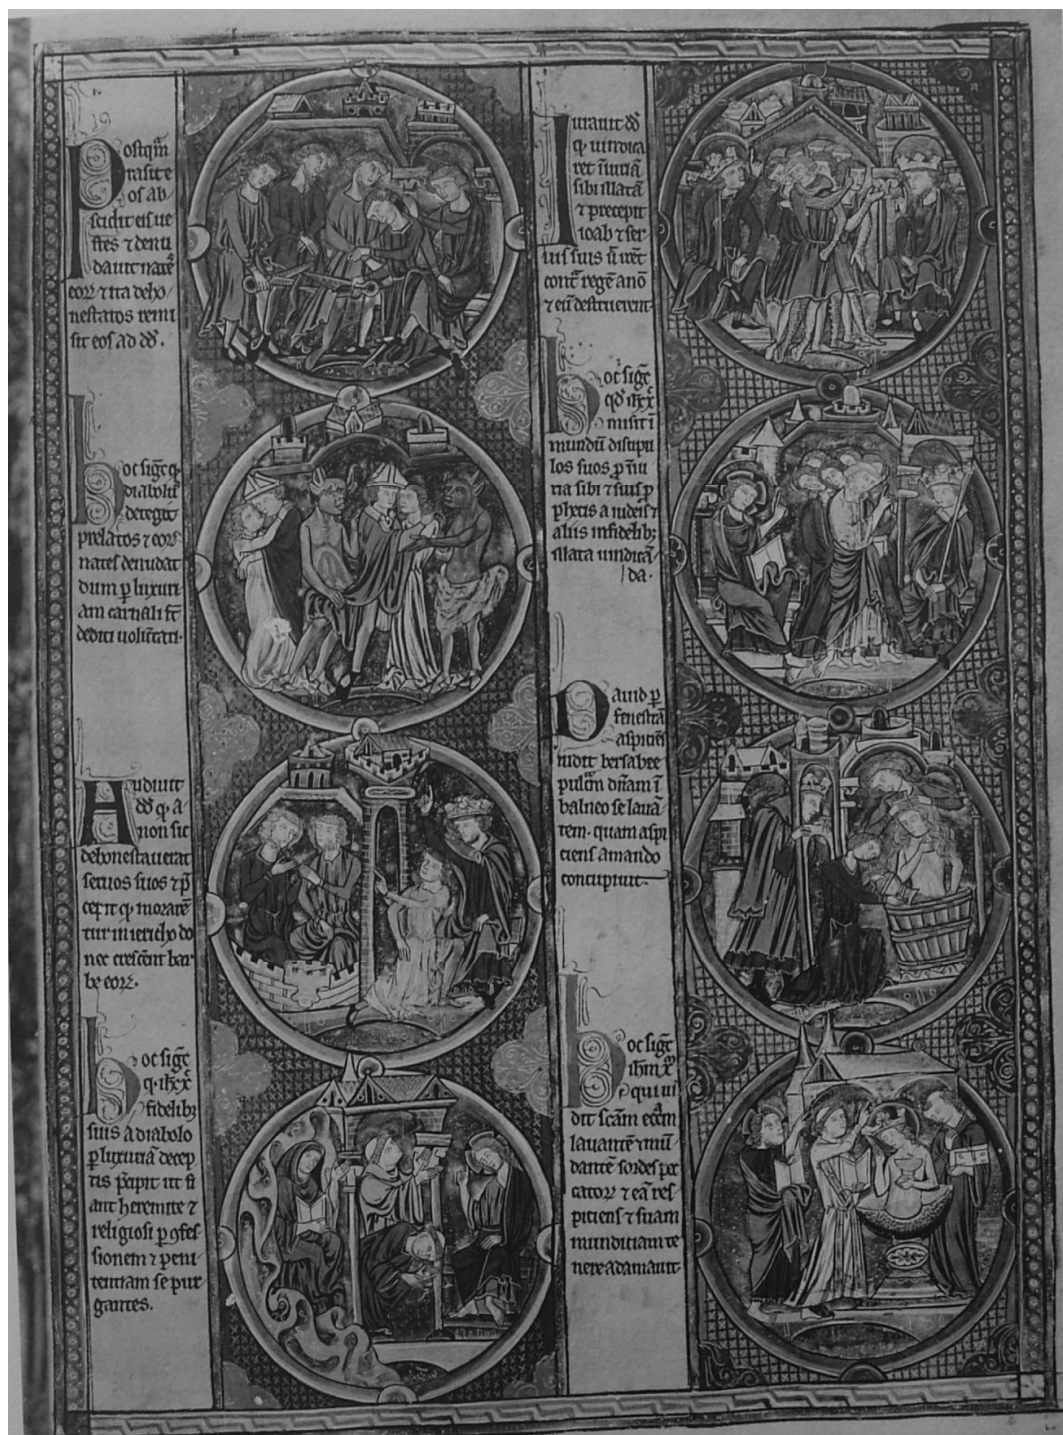 Postqm
rasit e
os ab
scidit eis ue
stes ⁊ denu
dauit nates
eorꝝ ⁊ ita deho
nestatos remi
sit eos ad dd̄.
Hoc sigͨ q
diabolus
detegit
prelatos ⁊ eorꝝ
nates denudat
dum ꝑ luxuri
am carnali se
dediti uolūtati.
Audiuit
dd̄ q a
non sic
dehonestauerat
seruos suos ⁊ p̄
cepit q morarēt
tur in iericho do
nec crescerēt bar
be eorꝝ.
Hoc sigͨ
q ih̄c xp̄c
fidelibꝫ
suis a diabolo
ꝑ luxuriā decep
tis p̄cipit ut fi
ant heremite ⁊
religiosi ꝑ ꝯfes
sionem ⁊ peni
tentiam se pur
gantes.
Iurauit dd̄
q uindica
ret iniuriā
sibi illatā
⁊ precepit
ioab ⁊ ser
uis suis
contͣ regē anō
⁊ eū destruerent
Hoc sigͨ
qd̄ ih̄c xp̄c
misit ī
mundū discipu
los suos ꝑ iniu
ria sibi ⁊ suis ꝓ
phetis a iudeis ⁊
aliis infidelibꝫ
illata uindicā
da.
Dauid ꝑ
fenestrā
aspiciens
uidit bersabee
pulcrā dn̄am ī
balneo se lauā
tem. quam aspi
ciens amando
concupiuit.
Hoc sigͨ
ih̄m xp̄m
qui ui
dit scām eccͣm
lauantē ⁊ mū
dantē sordes pec
catorꝝ ⁊ eā res
piciens ⁊ suam
mundiciam te
nere adamauit.